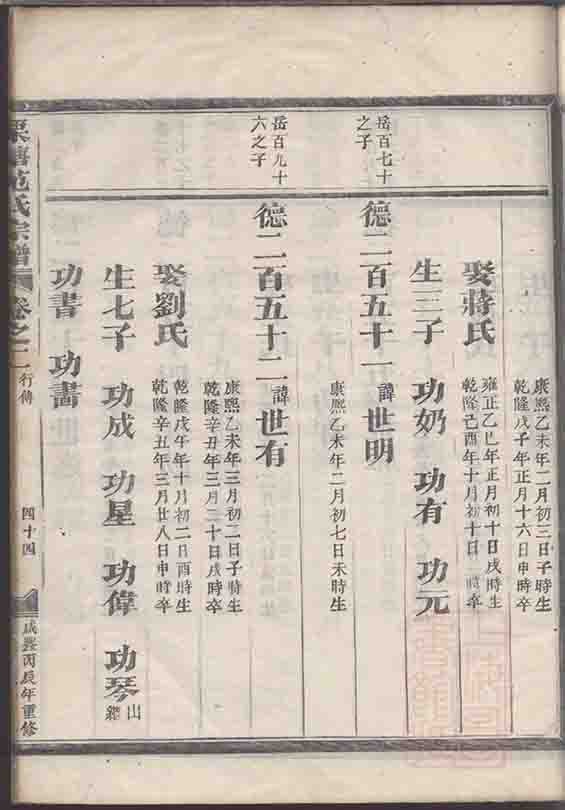 康熙乙未年二月初三日子時生
乾隆戊子年正月十六日申時卒
娶蔣氏
雍正乙巳年正月初十日戌時生
乾隆己酉年十月初十日 時卒
生三子 功奶 功有 功元
岳百七十
之子
德二百五十一 諱世明
康熙乙未年二月初七日未時生
岳百九十
六之子
德二百五十二 諱世有
康熙乙未年三月初二日子時生
乾隆辛丑年三月三十日戌時卒
娶劉氏
乾隆戊午年十月初二日酉時生
乾隆辛丑年三月廿八日申時卒
生七子 功成 功星 功偉 功琴 出繼
功書 功畵
范氏宗譜 卷之二 行傳 四十四 咸豐丙辰年重修